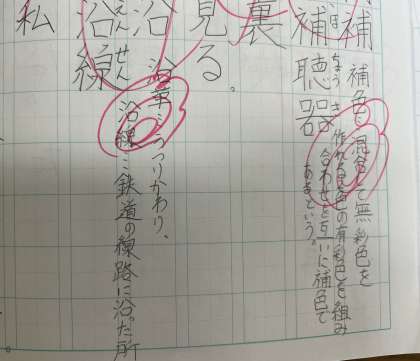 補
補色：混合して無彩色を
作れる色の有彩色を組み
合わせを互いに補色で
あるという。
補聴器
ちょう き
裏
見る。
沿
沿革：うつりかわり、
沿線
えんせん
沿線：鉄道の線路に沿った所
私